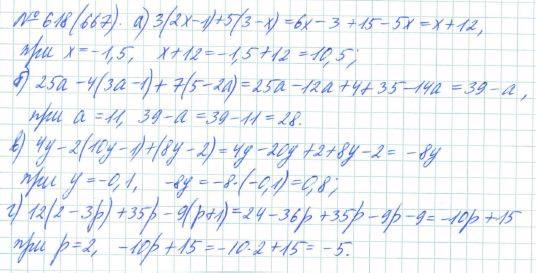 № 618(667). а) 3(2x-1)+5(3-x)=6x-3+15-5x=x+12,
при x=-1,5, x+12=-1,5+12=10,5;
б) 25a-4(3a-1)+7(5-2a)=25a-12a+4+35-14a=39-a,
при a=11, 39-a=39-11=28.
в) 4y-2(10y-1)+(8y-2)=4y-20y+2+8y-2=-8y
при y=-0,1, -8y=-8·(-0,1)=0,8;
г) 12(2-3p)+35p-9(p+1)=24-36p+35p-9p-9=-10p+15
при p=2, -10p+15=-10·2+15=-5.